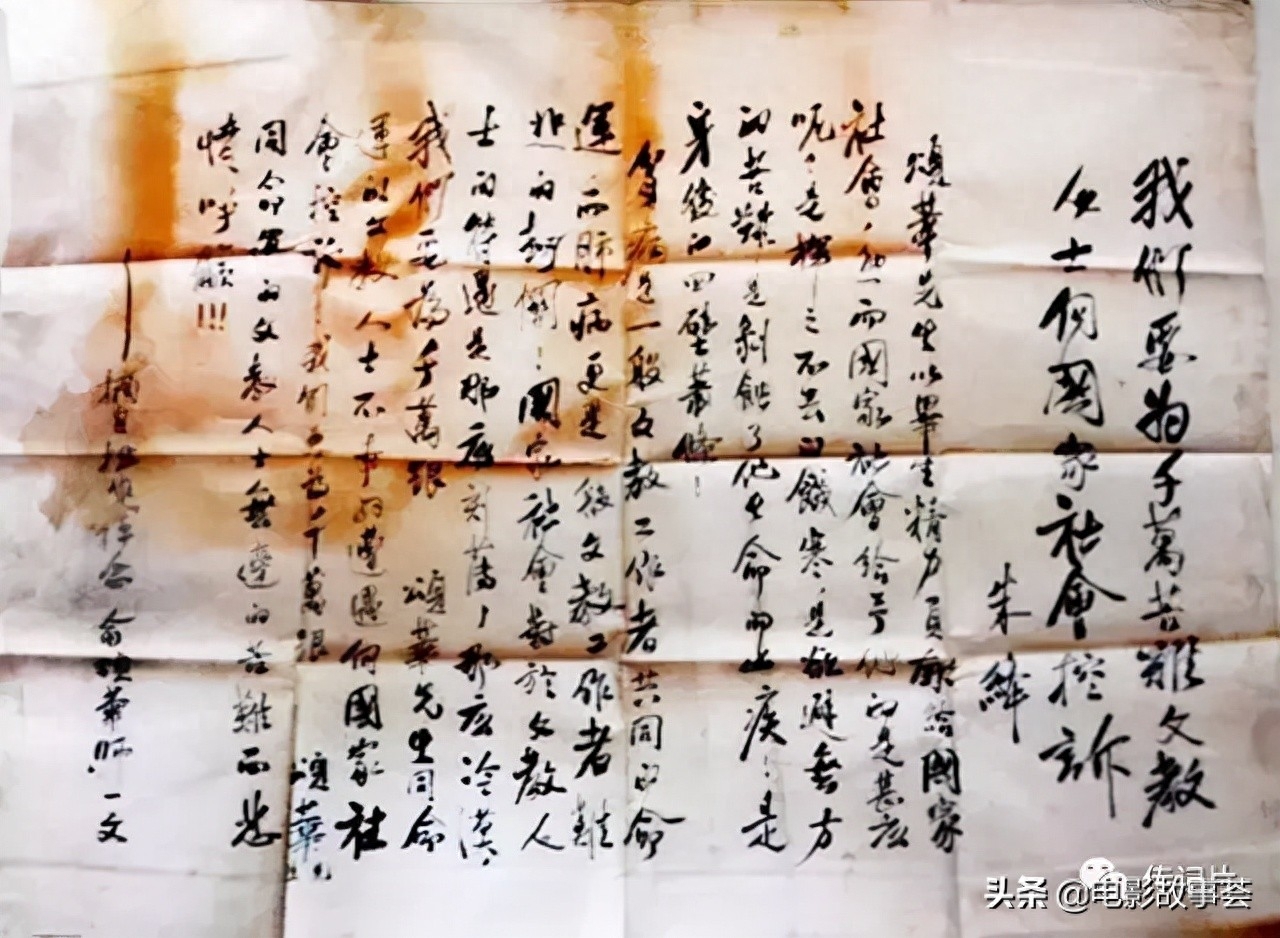 我們要為千萬苦難文教
人士向國家社會控訴
朱絳
頌華先生以畢生精力貢獻給國家
社會，然而國家社會給予他的是甚麼
呢？是揮之不去的饑寒，是欲避無方
的苦難，是剝蝕了他生命的疾！是
身後的四壁蕭條！
貧病是一般文教工作者共同的命
運，而肺病更是一般文教工作者難
的關！國家社會對於文教人
士的待遇是那麼刻薄，那麼冷漠，
我們要為千萬跟 頌華先生同命
運的文教人士不幸的遭遇向國家社
會控訴！我們要為千萬跟 頌華先
同命運的文教人士無邊的苦難而悲
憤，呼籲!!!
——摘自悼念 俞頌華師一文
传记片
头条 @电影故事荟